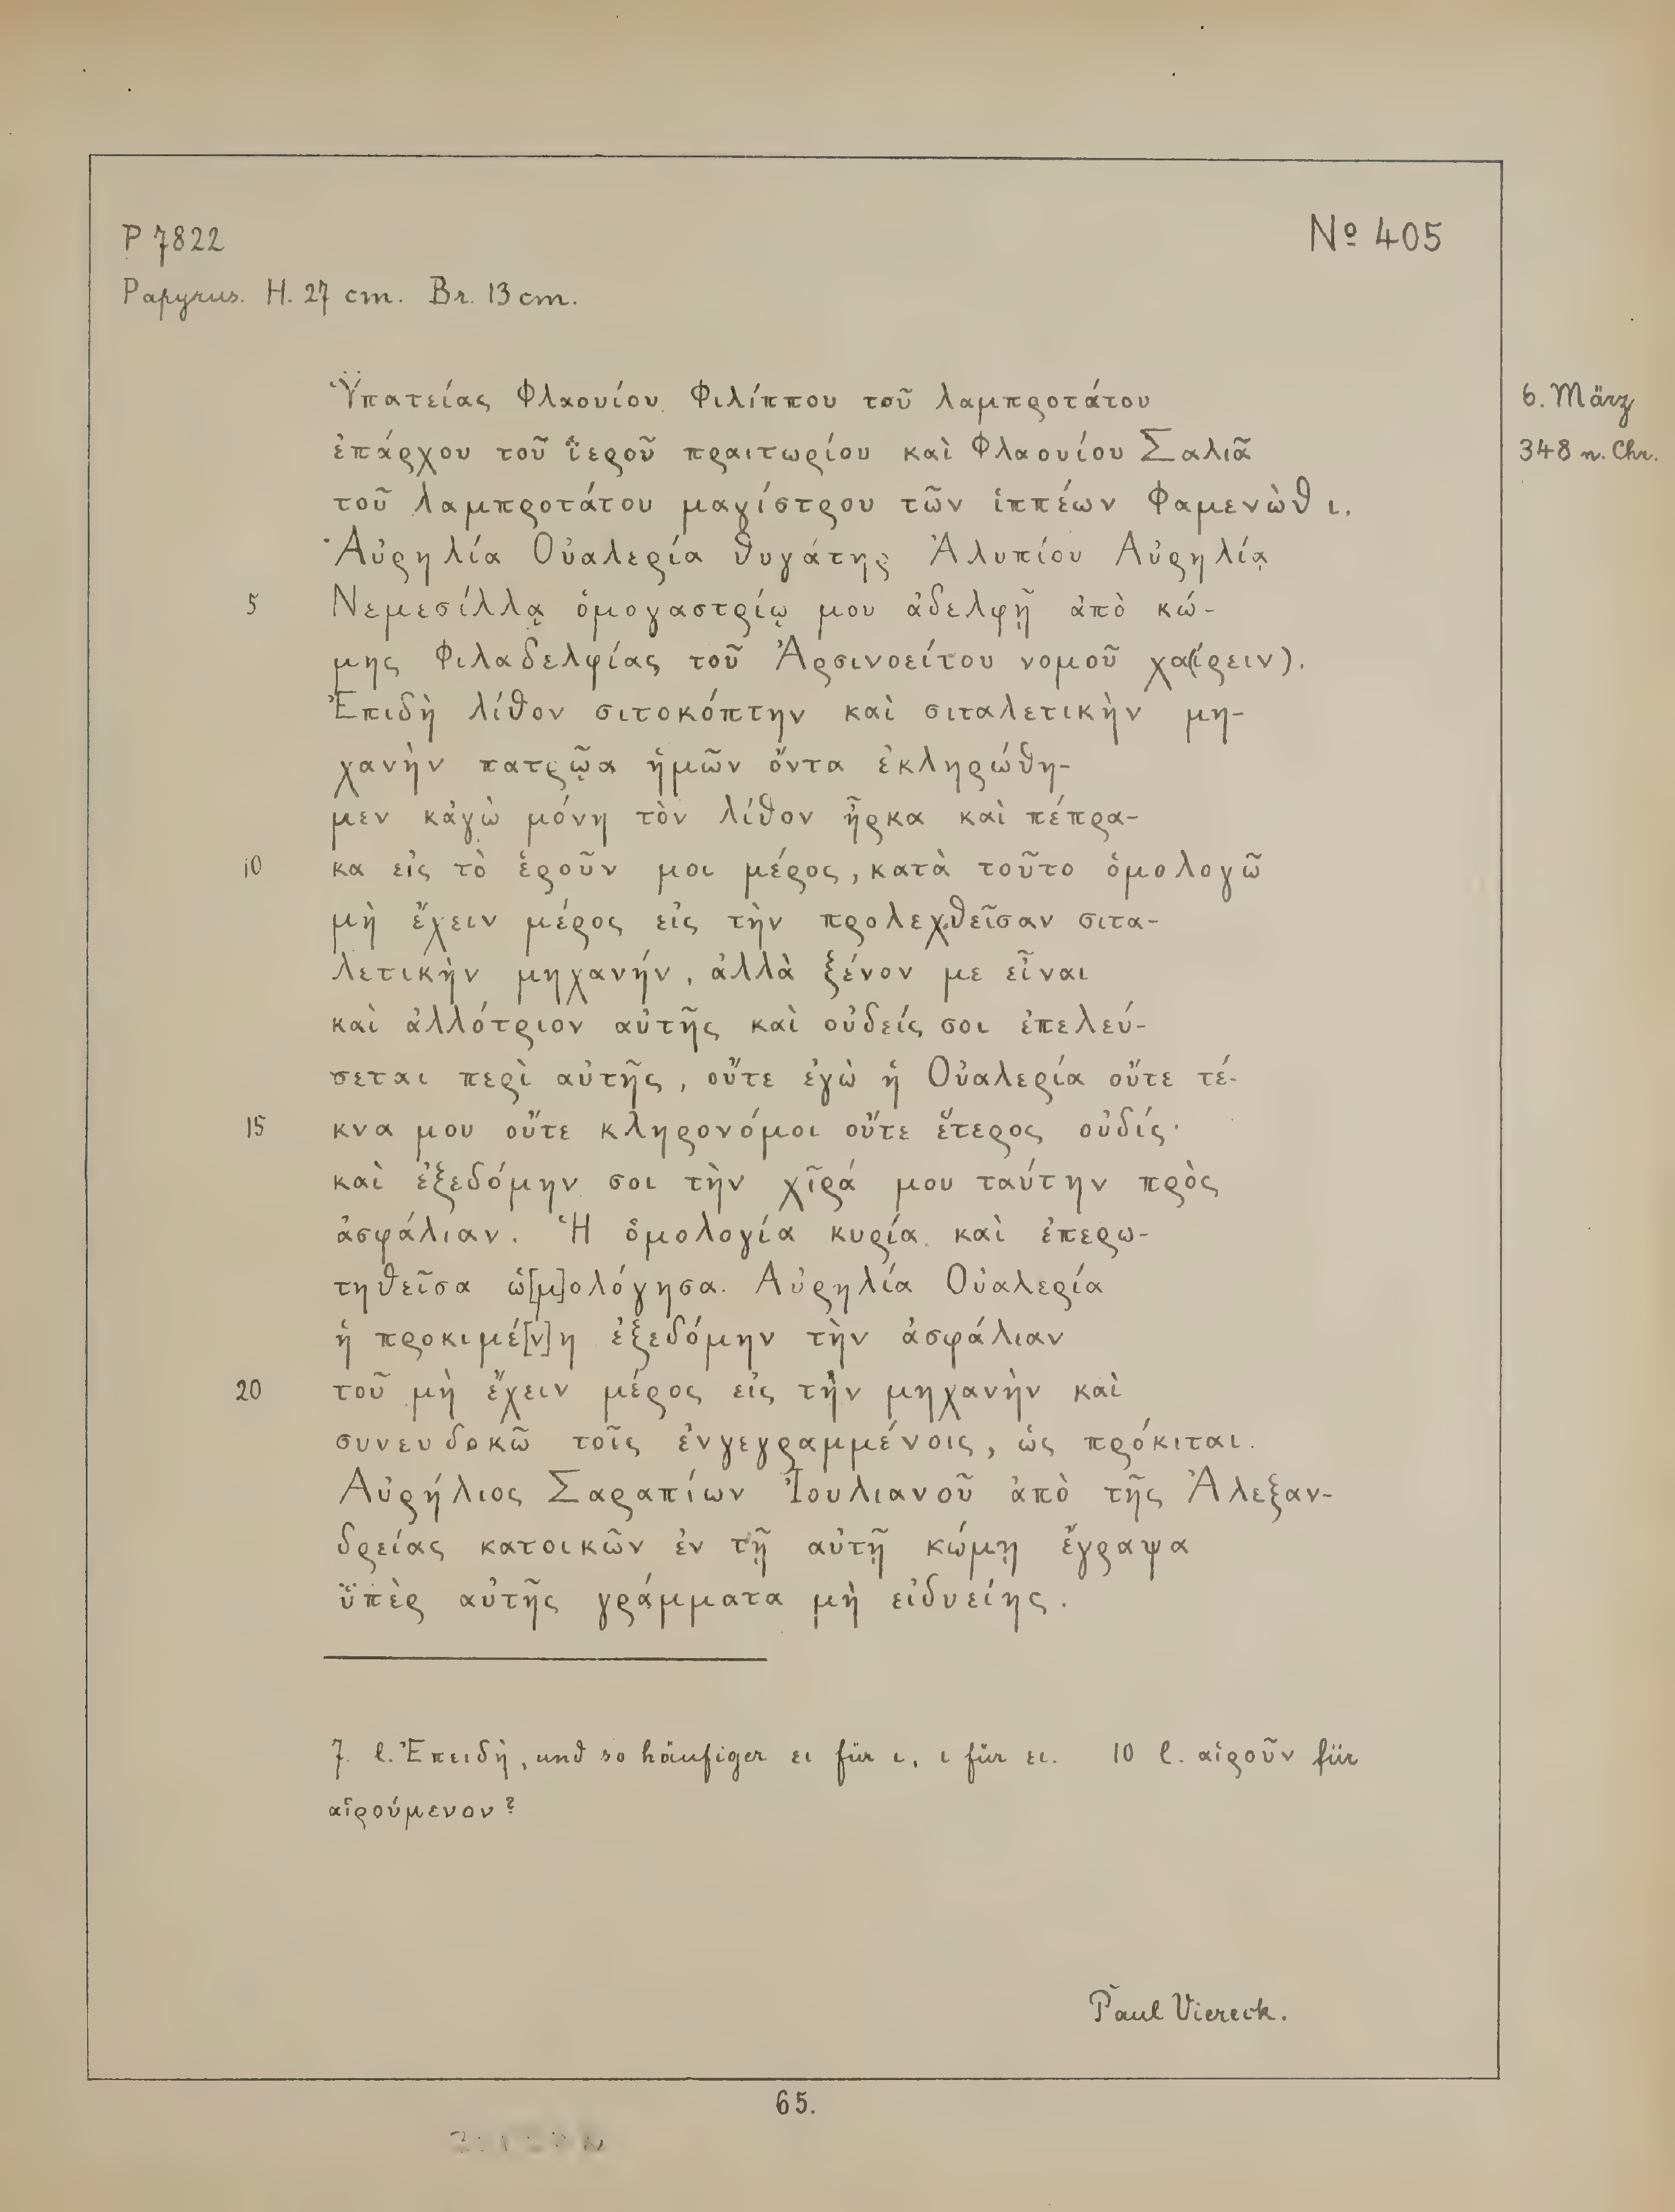 P 7822
No 405
Papyrus. H. 27 cm. Br. 13 cm.
Ὑ̈πατείας Φλαουίου Φιλίππου τοῦ λαμπροτάτου
6. März
ἐπάρχου τοῦ ἵ̈εροῦ πραιτωρίου καὶ Φλαουίου Σαλιᾶ
348 n. Chr.
τοῦ λαμπροτάτου μαγίστρου τῶν ἱππέων Φαμενὼθ ι.
Αὐρηλία Οὐαλερία θυγάτης Ἀλυπίου Αὐρηλίᾳ
5 Νεμεσίλλᾳ ὁμογαστρίῳ μου ἀδελφῇ ἀπὸ κώ-
μης Φιλαδελφίας τοῦ Ἀρσινοείτου νομοῦ χα(ίρειν).
Ἐπιδὴ λίθον σιτοκόπτην καὶ σιταλετικὴν μη-
χανὴν πατρῷα ἡμῶν ὄντα ἐκληρώθη-
μεν κἀγὼ μόνη τὸν λίθον ἦρκα καὶ πέπρα-
10 κα εἰς τὸ ἑροῦν μοι μέρος, κατὰ τοῦτο ὁμολογῶ
μὴ ἔχειν μέρος εἰς τὴν προλεχθεῖσαν σιτα-
λετικὴν μηχανήν, ἀλλὰ ξένον με εἶναι
καὶ ἀλλότριον αὐτῆς καὶ οὐδείς σοι ἐπελεύ-
σεται περὶ αὐτῆς, οὔτε ἐγὼ ἡ Οὐαλερία οὔτε τέ-
15 κνα μου οὔτε κληρονόμοι οὔτε ἕτερος οὐδίς·
καὶ ἐξεδόμην σοι τὴν χῖρά μου ταύτην πρὸς
ἀσφάλιαν. Ἡ ὁμολογία κυρία καὶ ἐπερω-
τηθεῖσα ὡ[μ]ολόγησα. Αὐρηλία Οὐαλερία
ἡ προκιμέ[ν]η ἐξεδόμην τὴν ἀσφάλιαν
20 τοῦ μὴ ἔχειν μέρος εἰς τὴν μηχανὴν καὶ
συνευδοκῶ τοῖς ἐνγεγραμμένοις, ὡς πρόκιται.
Αὐρήλιος Σαραπίων Ἰουλιανοῦ ἀπὸ τῆς Ἀλεξαν-
δρείας κατοικῶν ἐν τῇ αὐτῇ κώμῃ ἔγραψα
ὑ̈πὲρ αὐτῆς γράμματα μὴ εἰδυείης.
7. l. Ἐπειδὴ, und so häufiger ει für ι, ι für ει. 10 l. αἱροῦν für
αἱρούμενον?
Paul Viereck.
65.